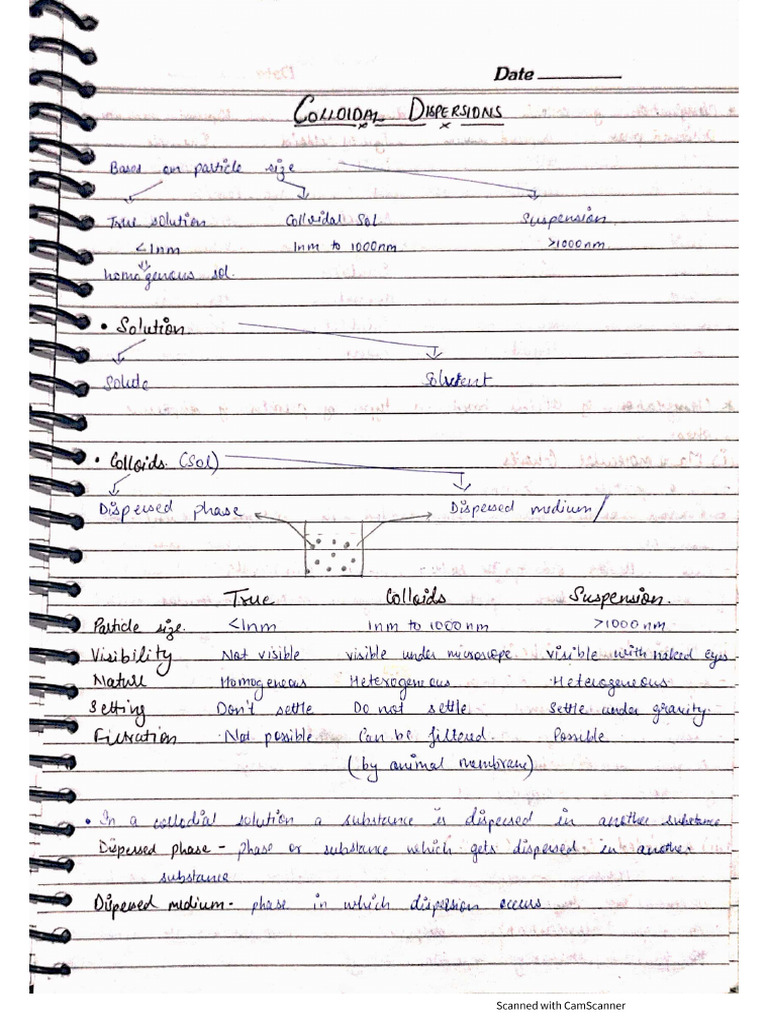 Date
COLLOIDAL DISPERSIONS
Based on particle size
True solution Colloidal Sol. Suspension
<1nm 1nm to 1000nm >1000nm
homogenous sol.
• Solution
Solute Solvent
• Colloids (Sol)
Dispersed phase Dispersed medium/
True Colloids Suspension.
Particle size. <1nm 1nm to 1000nm >1000nm
Visibility Not visible visible under microscope visible with naked eyes
Nature Homogeneous Heterogeneous Heterogeneous
Setting Don't settle Do not settle Settle under gravity.
Filtration Not possible Can be filtered. Possible
(by animal membrane)
• In a collodial solution a substance is dispersed in another substance
Dispersed phase - phase or substance which gets dispersed in another
substance
Dispersed medium - phase in which dispersion occurs.
Scanned with CamScanner